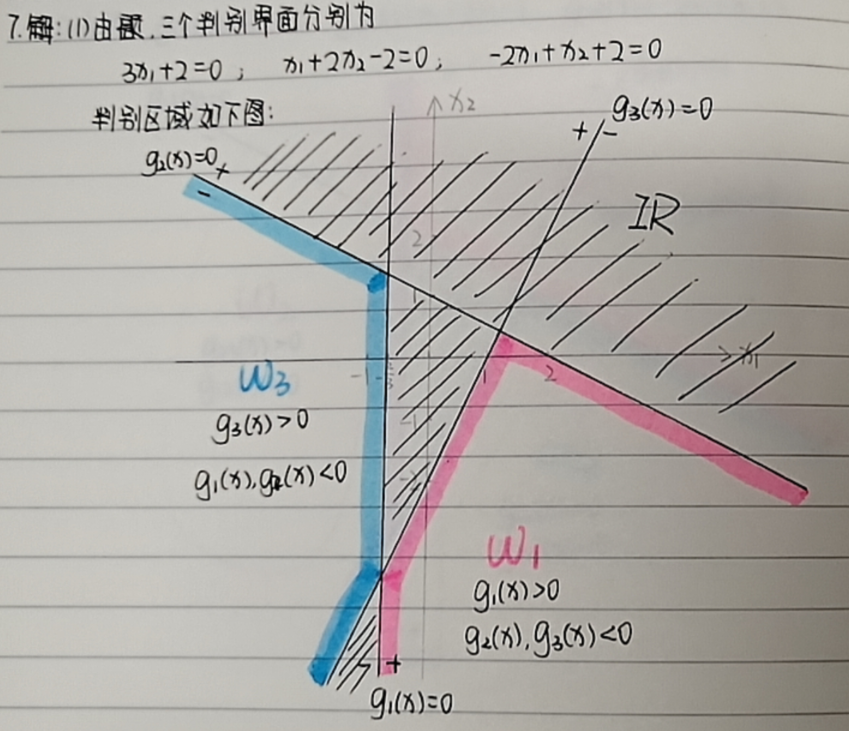 7.解:(1)由题,三个判别界面分别为
3x₁+2=0; x₁+2x₂-2=0; -2x₁+x₂+2=0
判别区域如下图:
x₂
g₃(x)=0
+ -
g₂(x)=0
+
-
IR
2
1
x₁
-1
1
2
W₃
g₃(x)>0
g₁(x),g₂(x)<0
W₁
g₁(x)>0
g₂(x),g₃(x)<0
- +
g₁(x)=0